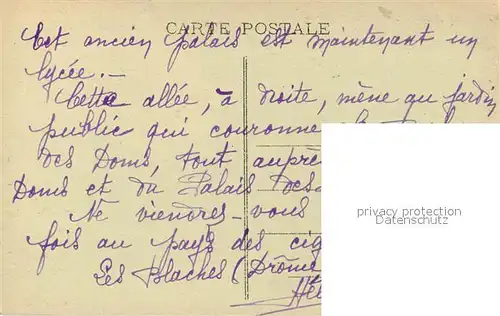 CARTE POSTALE
Cet ancien palais est maintenant un
lycée. –
Cette allée, à droite, mène au jardin
public qui couronne
des Doms, tout auprè
Doms et du Palais des
Ne viendres-vous
fois au pays des cig
Les Blaches (Drôme
privacy protection
Datenschutz